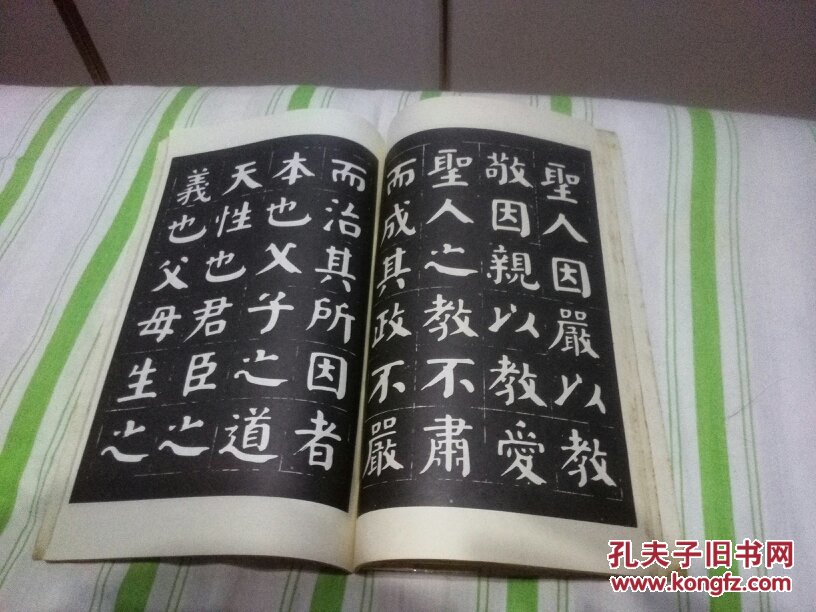 聖人因嚴以教
敬因親以教愛
聖人之教不肅
而成其政不嚴
而治其所因者
本也父子之道
天性也君臣之
義也父母生之
孔夫子旧书网
www.kongfz.com